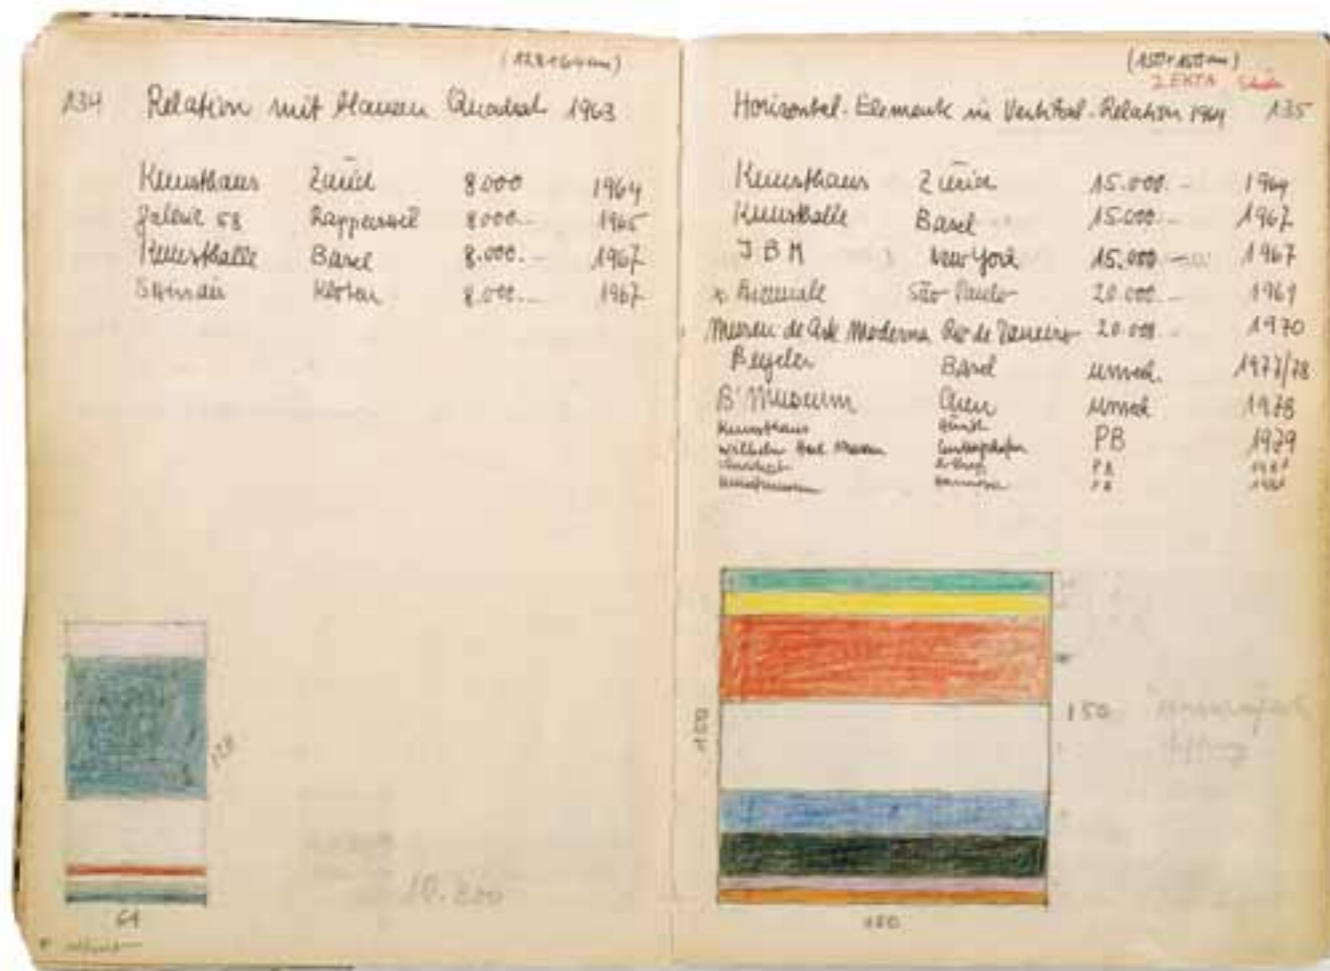 (128×64cm)
134 Relation mit blauem Quadrat 1963
Kunsthaus Zürich 8.000 1964
Galerie 58 Rapperswil 8.000.- 1965
Kunsthalle Basel 8.000.- 1967
Kloten 8.000.- 1967
128
64
10.200
(150×150cm)
2 EKTA
Horizontal-Elemente in Vertikal-Relation 1964 135
Kunsthaus Zürich 15.000.- 1964
Kunsthalle Basel 15.000.- 1967
IBM New York 15.000.- 1967
x Biennale São Paulo 20.000.- 1969
Museu de Arte Moderna Rio de Janeiro 20.000.- 1970
Beyeler Basel unverk. 1977/78
Museum unverk 1978
Kunsthaus Zürich PB 1979
Wilhelm Hack Museum Ludwigshafen PB
Kunstmuseum Hannover PB
150
150
150